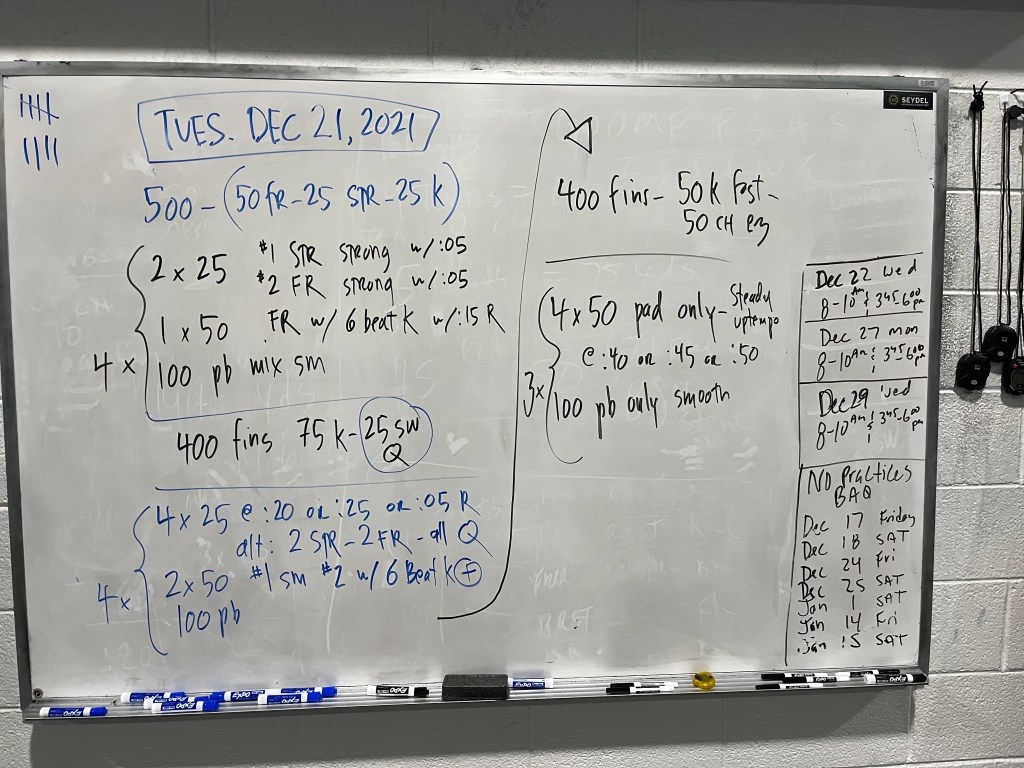 TUES. DEC 21, 2021
500 - (50 FR - 25 STR - 25 K)
4 x
2 x 25 #1 STR strong w/ :05
#2 FR strong w/ :05
1 x 50 FR w/ 6 beat K w/ :15 R
100 pb mix sm
400 fins 75 K - 25 sw
Q
4 x
4 x 25 @ :20 or :25 or :05 R
alt: 2 STR - 2 FR - all Q
2 x 50 #1 sm #2 w/ 6 Beat K +
100 pb
400 fins - 50 K fast -
50 CH ez
3x
4 x 50 pad only - steady
uptempo
@ :40 or :45 or :50
100 pb only smooth
SEYDEL
Dec 22 Wed
8-10 Am & 345-600 pm
Dec 27 mon
8-10 Am & 345-600 pm
Dec 29 Wed
8-10 Am & 345-600 pm
NO Practices
BAQ
Dec 17 Friday
Dec 18 SAT
Dec 24 Fri
Dec 25 SAT
Jan 1 SAT
Jan 14 Fri
Jan 15 SAT
EXPO
EXPO
EXPO
EXPO
EXPO
EXPO
EXPO